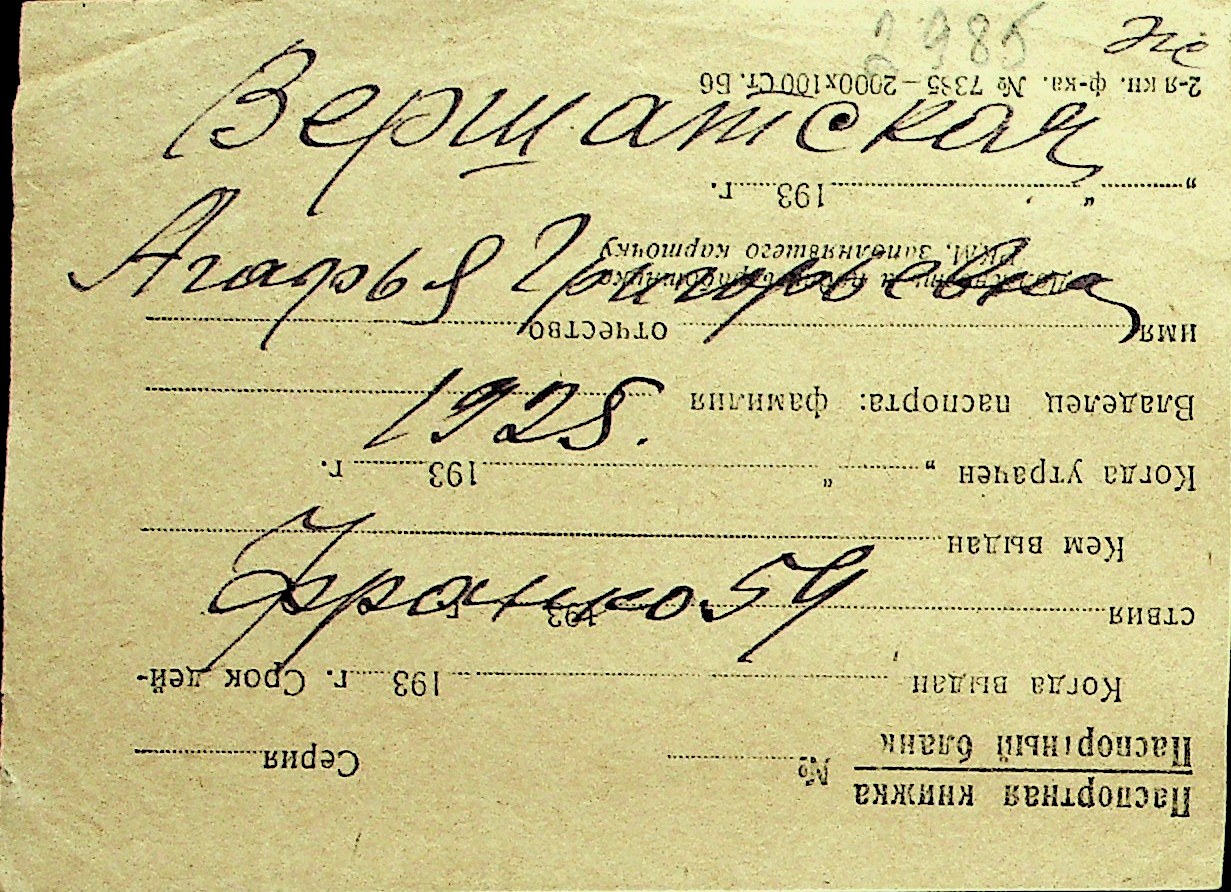 2985
Вершатская
Агафья Григорьевна
1928.
Франко 54
Паспортная книжка
Паспортный бланк № Серия
Когда выдан 193 г. Срок дей-
ствия 193 г.
Кем выдан
Когда утрачен „ “ 193 г.
Владелец паспорта: фамилия
имя отчество
РКМ. заполнявшего карточку
„ “ 193 г.
2-я кн. ф-ка. № 7385—2000х100 Ст. Б6